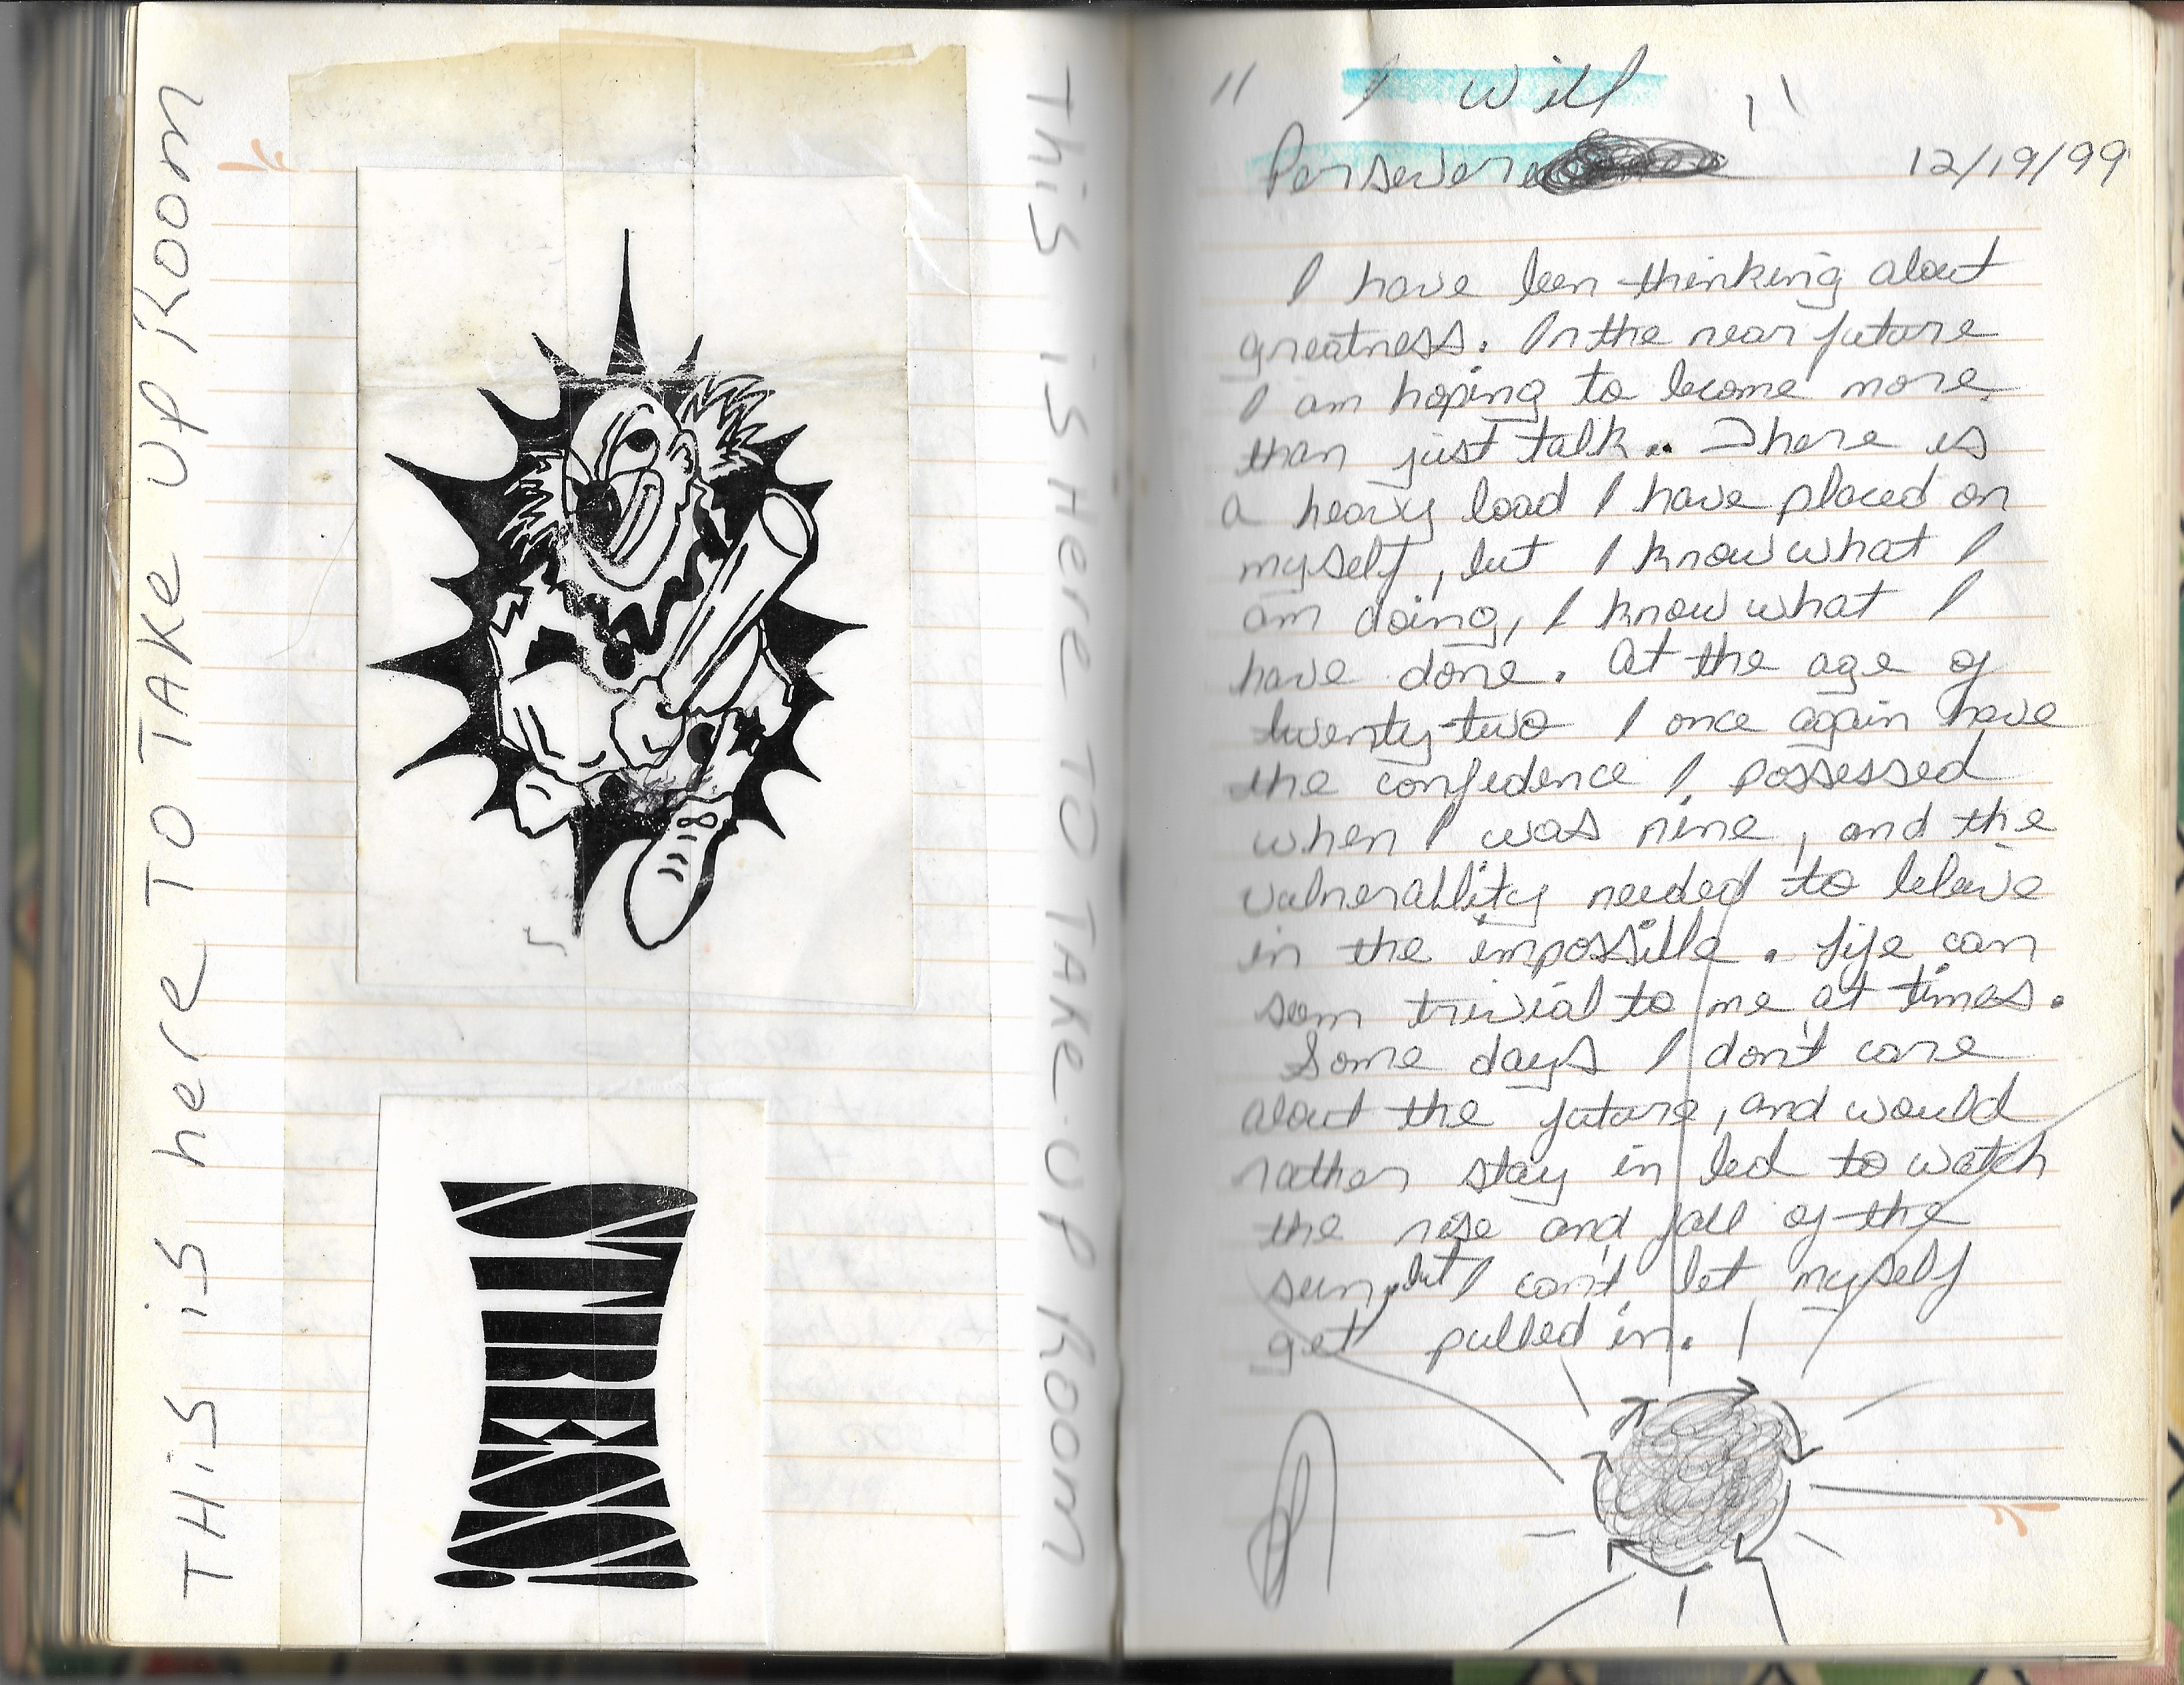 THiS iS here TO TAKe UP Room
STRESS!
THiS iS Here TO TAKe UP Room
" I will "
Persevere
12/19/99
I have been thinking about
greatness. In the near future
I am hoping to become more
than just talk.. There is
a heavy load I have placed on
myself, but I know what I
am doing, I know what I
have done. At the age of
twenty-two I once again have
the confidence I possessed
when I was nine, and the
vulnerability needed to beleive
in the impossible. Life can
seem trivial to me at times.
Some days I don't care
about the future, and would
rather stay in bed to watch
the rise and fall of the
sun, but I can't let myself
get pulled in.